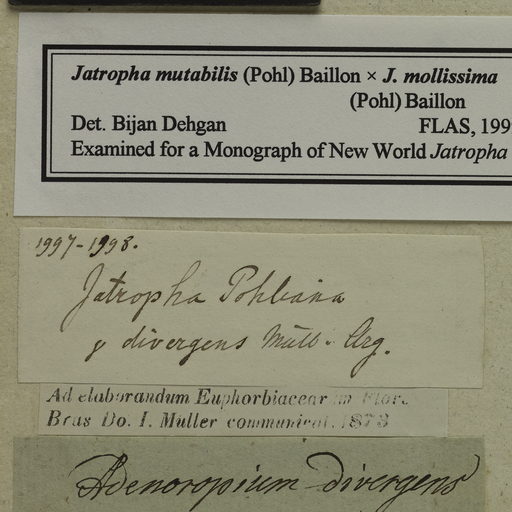 Jatropha mutabilis (Pohl) Baillon × J. mollissima
(Pohl) Baillon
Det. Bijan Dehgan FLAS, 199
Examined for a Monograph of New World Jatropha
1997-1998.
Jatropha Pohliana
γ divergens Müll. Arg.
Ad elaborandum Euphorbiacear in Flora
Bras Do. I. Muller communicat. 1873
Adenoropium divergens